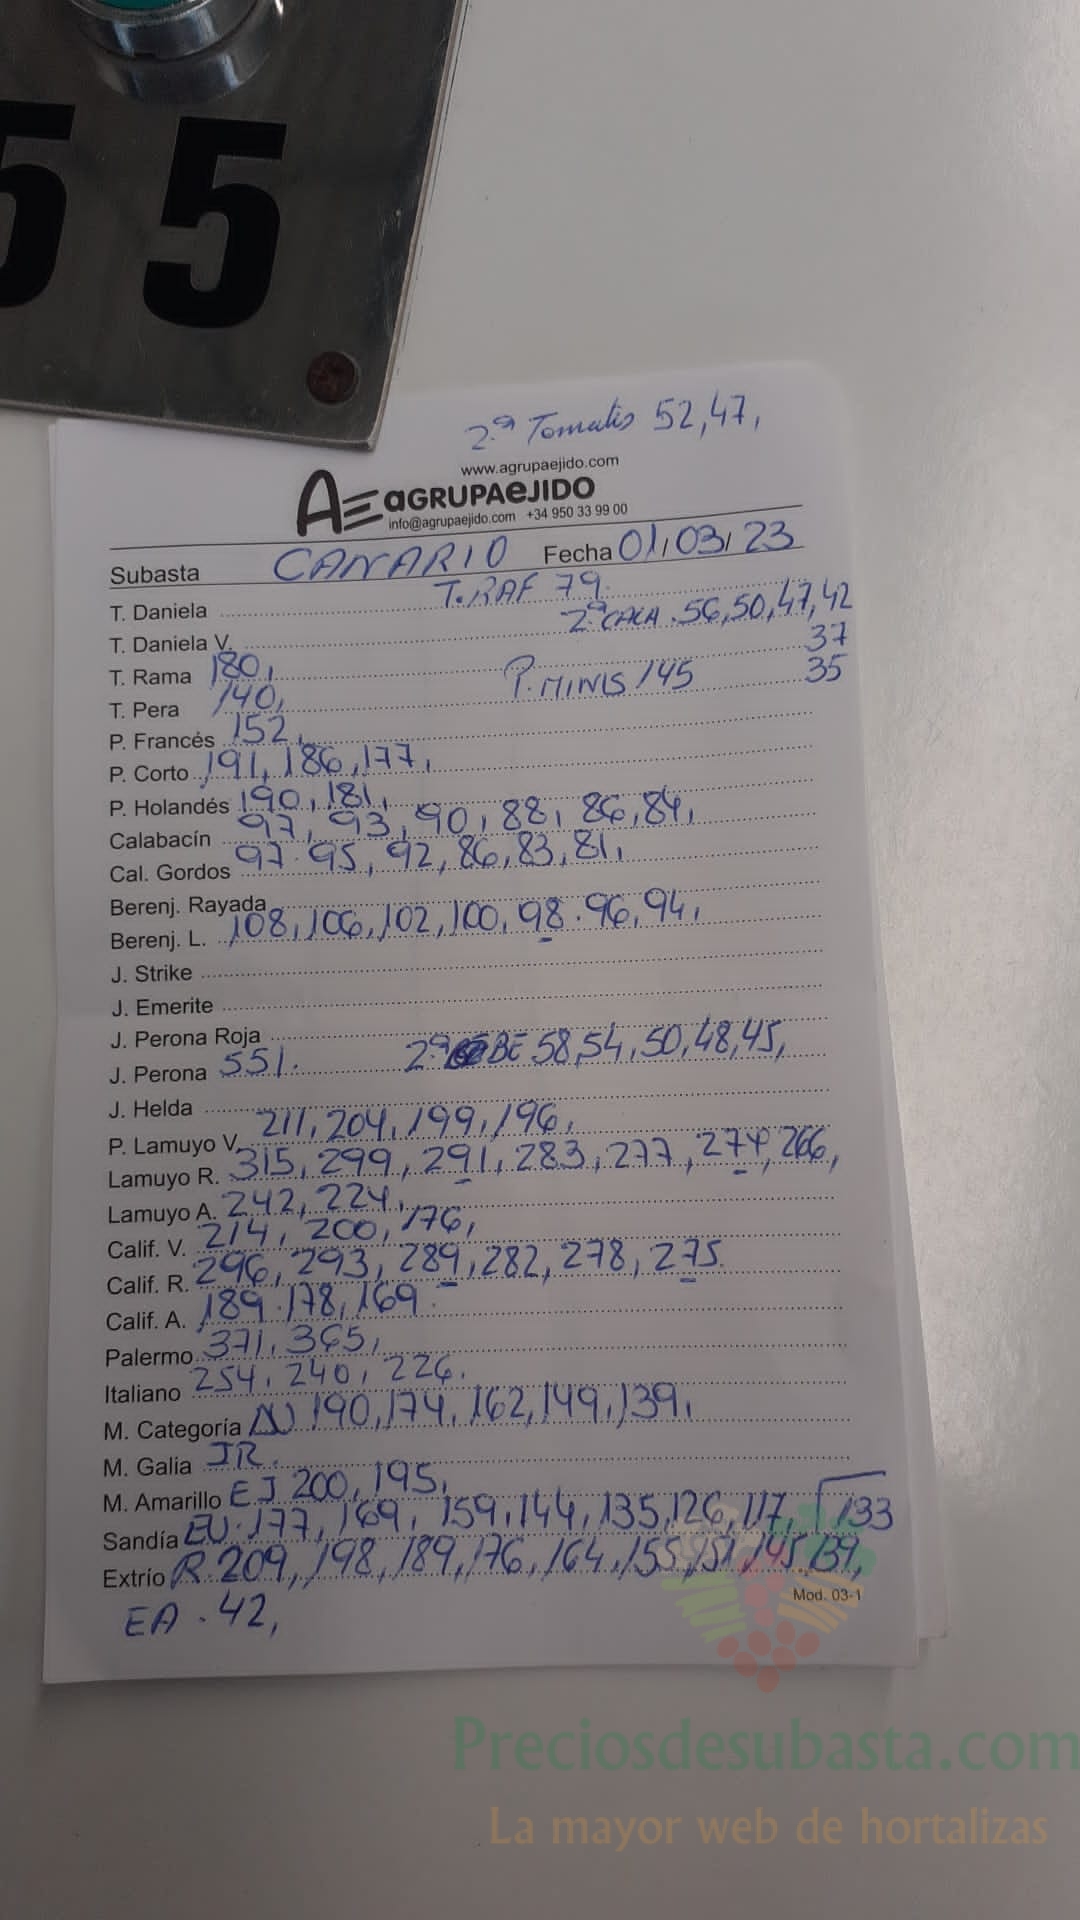 5 5
2ª Tomates 52, 47,
www.agrupaejido.com
AE AGRUPAEJIDO
info@agrupaejido.com +34 950 33 99 00
Subasta CANARIO Fecha 01/03/23
T. Daniela T. RAF 79.
T. Daniela V. 2ª CALA. 56, 50, 47, 42
37
T. Rama 180, P. MINIS 145 35
T. Pera 140,
P. Francés 152,
P. Corto 191, 186, 177,
P. Holandés 190, 181,
Calabacín 97, 93, 90, 88, 86, 84,
Cal. Gordos 97. 95, 92, 86, 83, 81,
Berenj. Rayada
Berenj. L. 108, 106, 102, 100, 98. 96, 94,
J. Strike
J. Emerite
J. Perona Roja
J. Perona 551. 2ª BE 58, 54, 50, 48, 45,
J. Helda
P. Lamuyo V. 211, 204, 199, 196,
Lamuyo R. 315, 299, 291, 283, 277, 274, 266,
Lamuyo A. 242, 224,
Calif. V. 214, 200, 176,
Calif. R. 296, 293, 289, 282, 278, 275.
Calif. A. 189. 178, 169.
Palermo 371, 365,
Italiano 254, 240, 226,
M. Categoría 190, 174, 162, 149, 139,
M. Galia JR.
M. Amarillo EJ 200, 195,
Sandía EU. 177, 169, 159, 144, 135, 126, 117, 133
Extrío R. 209, 198, 189, 176, 164, 155, 151, 145. 139,
Mod. 03-1
EA. 42,
Preciosdesubasta.com
La mayor web de hortalizas